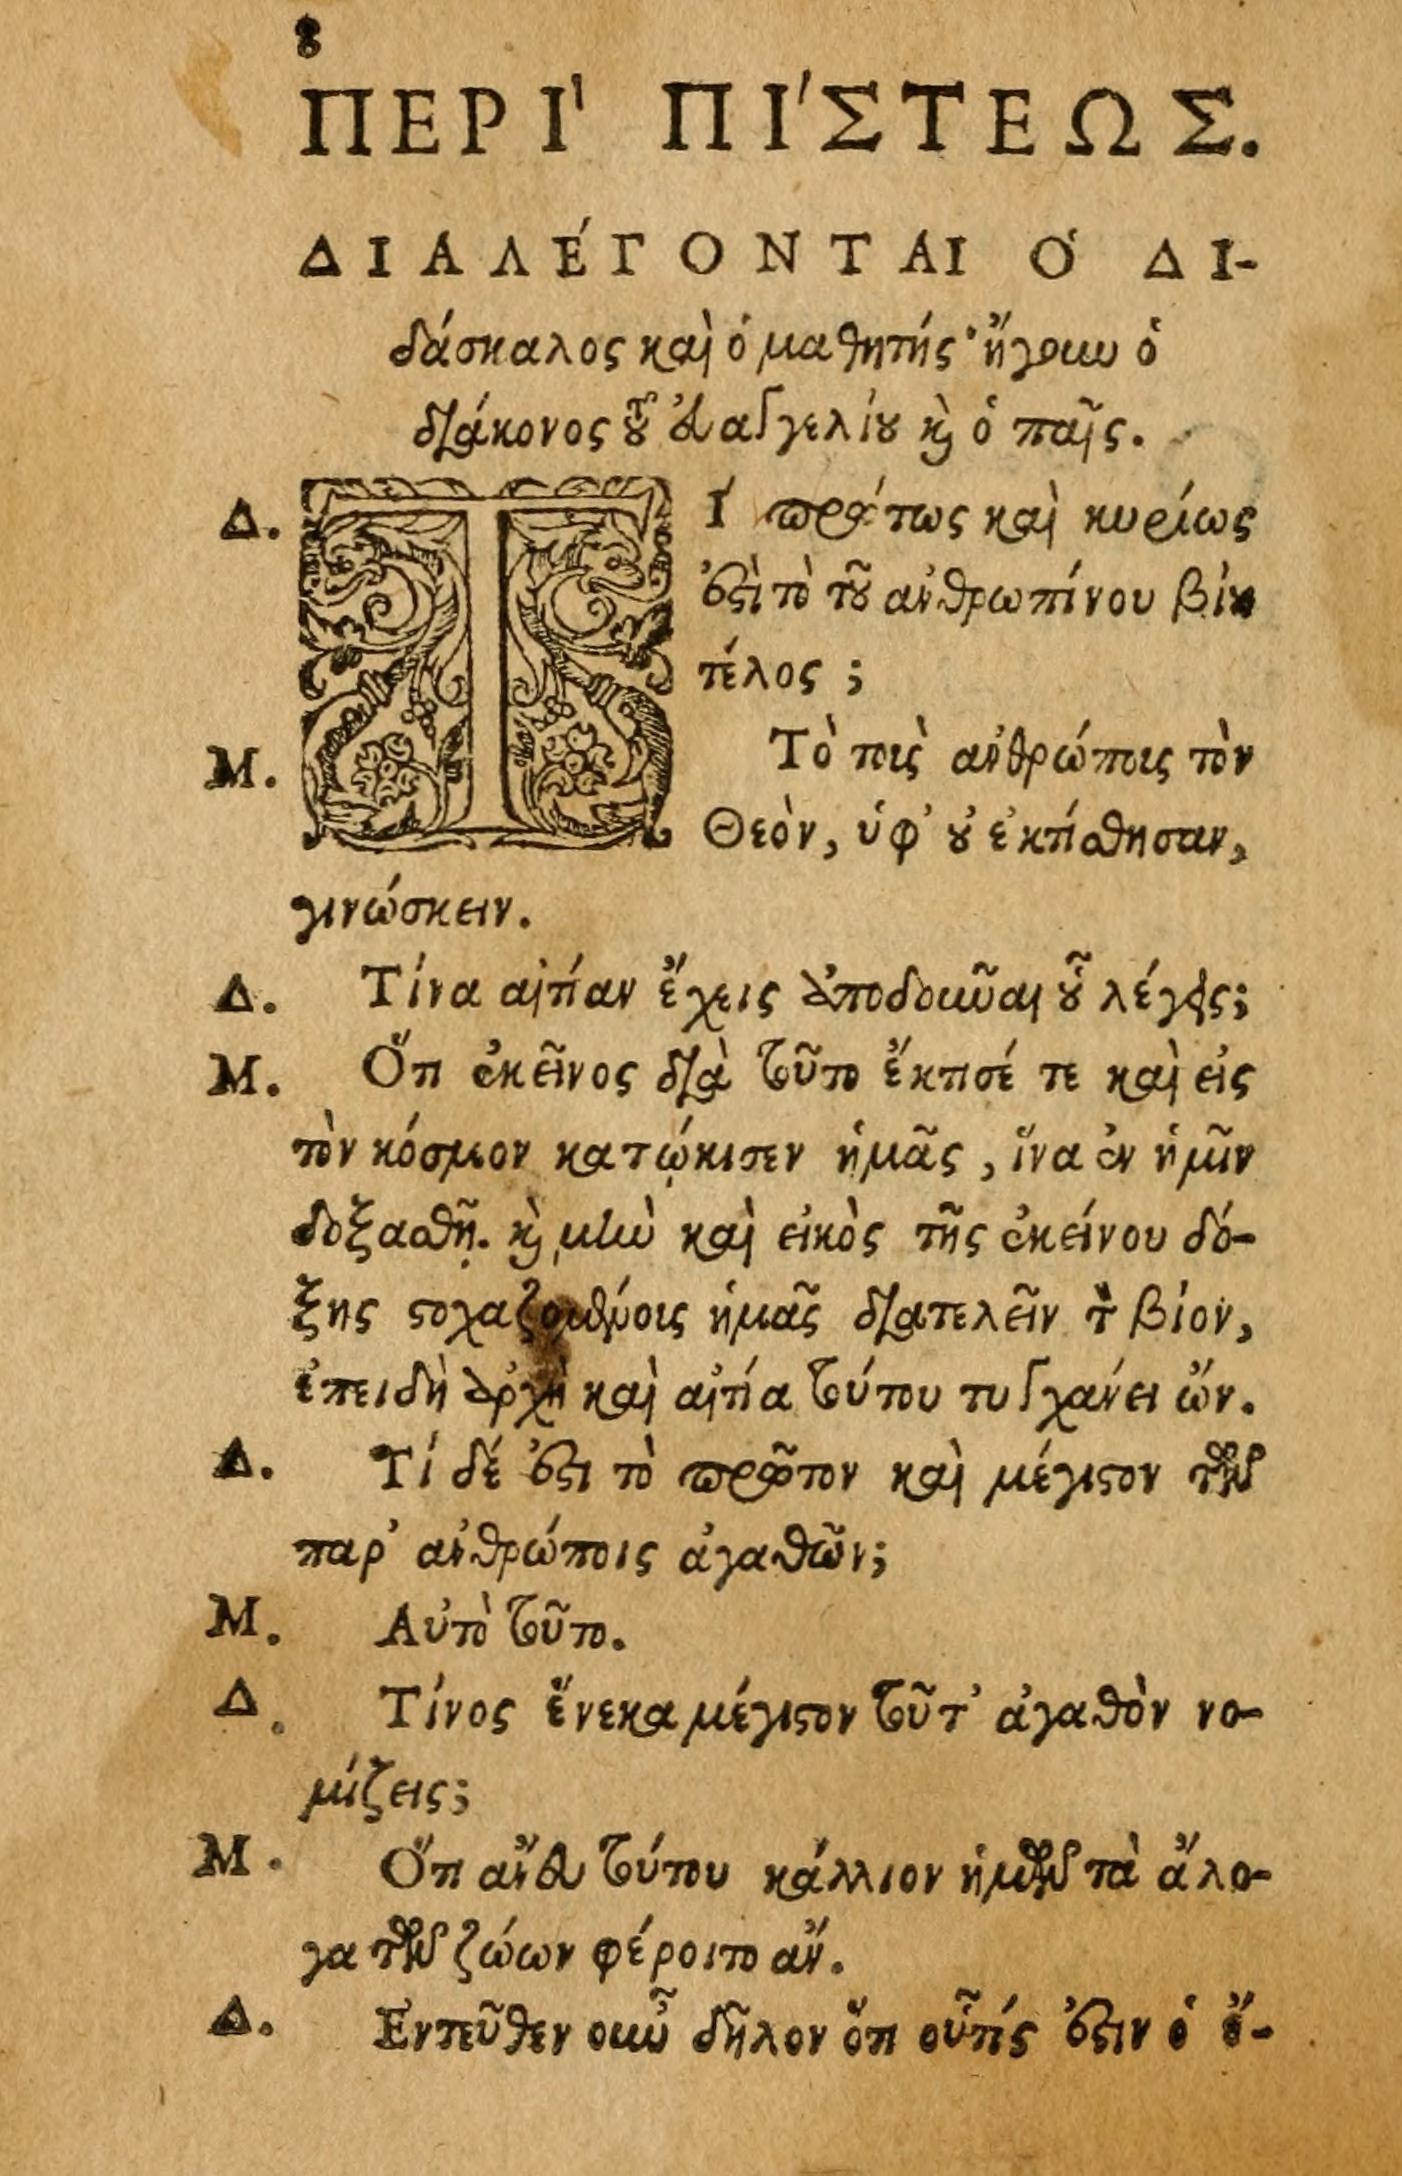 8
ΠΕΡῚ ΠΊΣΤΕΩΣ.
ΔΙΑΛΈΓΟΝΤΑΙ Ὁ ΔΙ-
δάσκαλος καὶ ὁ μαθητής· ἤγουν ὁ
διάκονος τοῦ ἐυαγγελίου καὶ ὁ παῖς.
Δ. ΤΊ πρώτως καὶ κυρίως
ἐστὶ τὸ τοῦ ἀνθρωπίνου βίου
τέλος ;
Μ. Τὸ τοὺς ἀνθρώποις τὸν
Θεὸν, ὑφ' οὗ ἐκτίσθησαν,
γινώσκειν.
Δ. Τίνα αἰτίαν ἔχεις ἀποδοῦναι οὗ λέγεις;
Μ. Ὅτι ἐκεῖνος διὰ τοῦτο ἔκτισέ τε καὶ εἰς
τὸν κόσμον κατῴκισεν ἡμᾶς, ἵνα ἐν ἡμῖν
δοξασθῇ. καὶ μὴν καὶ εἰκὸς τῆς ἐκείνου δό-
ξης στοχαζομένοις ἡμᾶς διατελεῖν τὸν βίον,
ἐπειδὴ ἀρχὴ καὶ αἰτία τούτου τυγχάνει ὤν.
Δ. Τί δέ ἐστι τὸ πρῶτον καὶ μέγιστον τῶν
παρ' ἀνθρώποις ἀγαθῶν;
Μ. Αὐτὸ τοῦτο.
Δ. Τίνος ἕνεκα μέγιστον τοῦτ' ἀγαθὸν νο-
μίζεις;
Μ. Ὅτι ἄνευ τούτου κάλλιον ἡμῶν τὰ ἄλο-
γα τῶν ζώων φέροιτο ἄν.
Δ. Ἐντεῦθεν οὖν δῆλον ὅτι οὔτίς ἐστιν ὁ